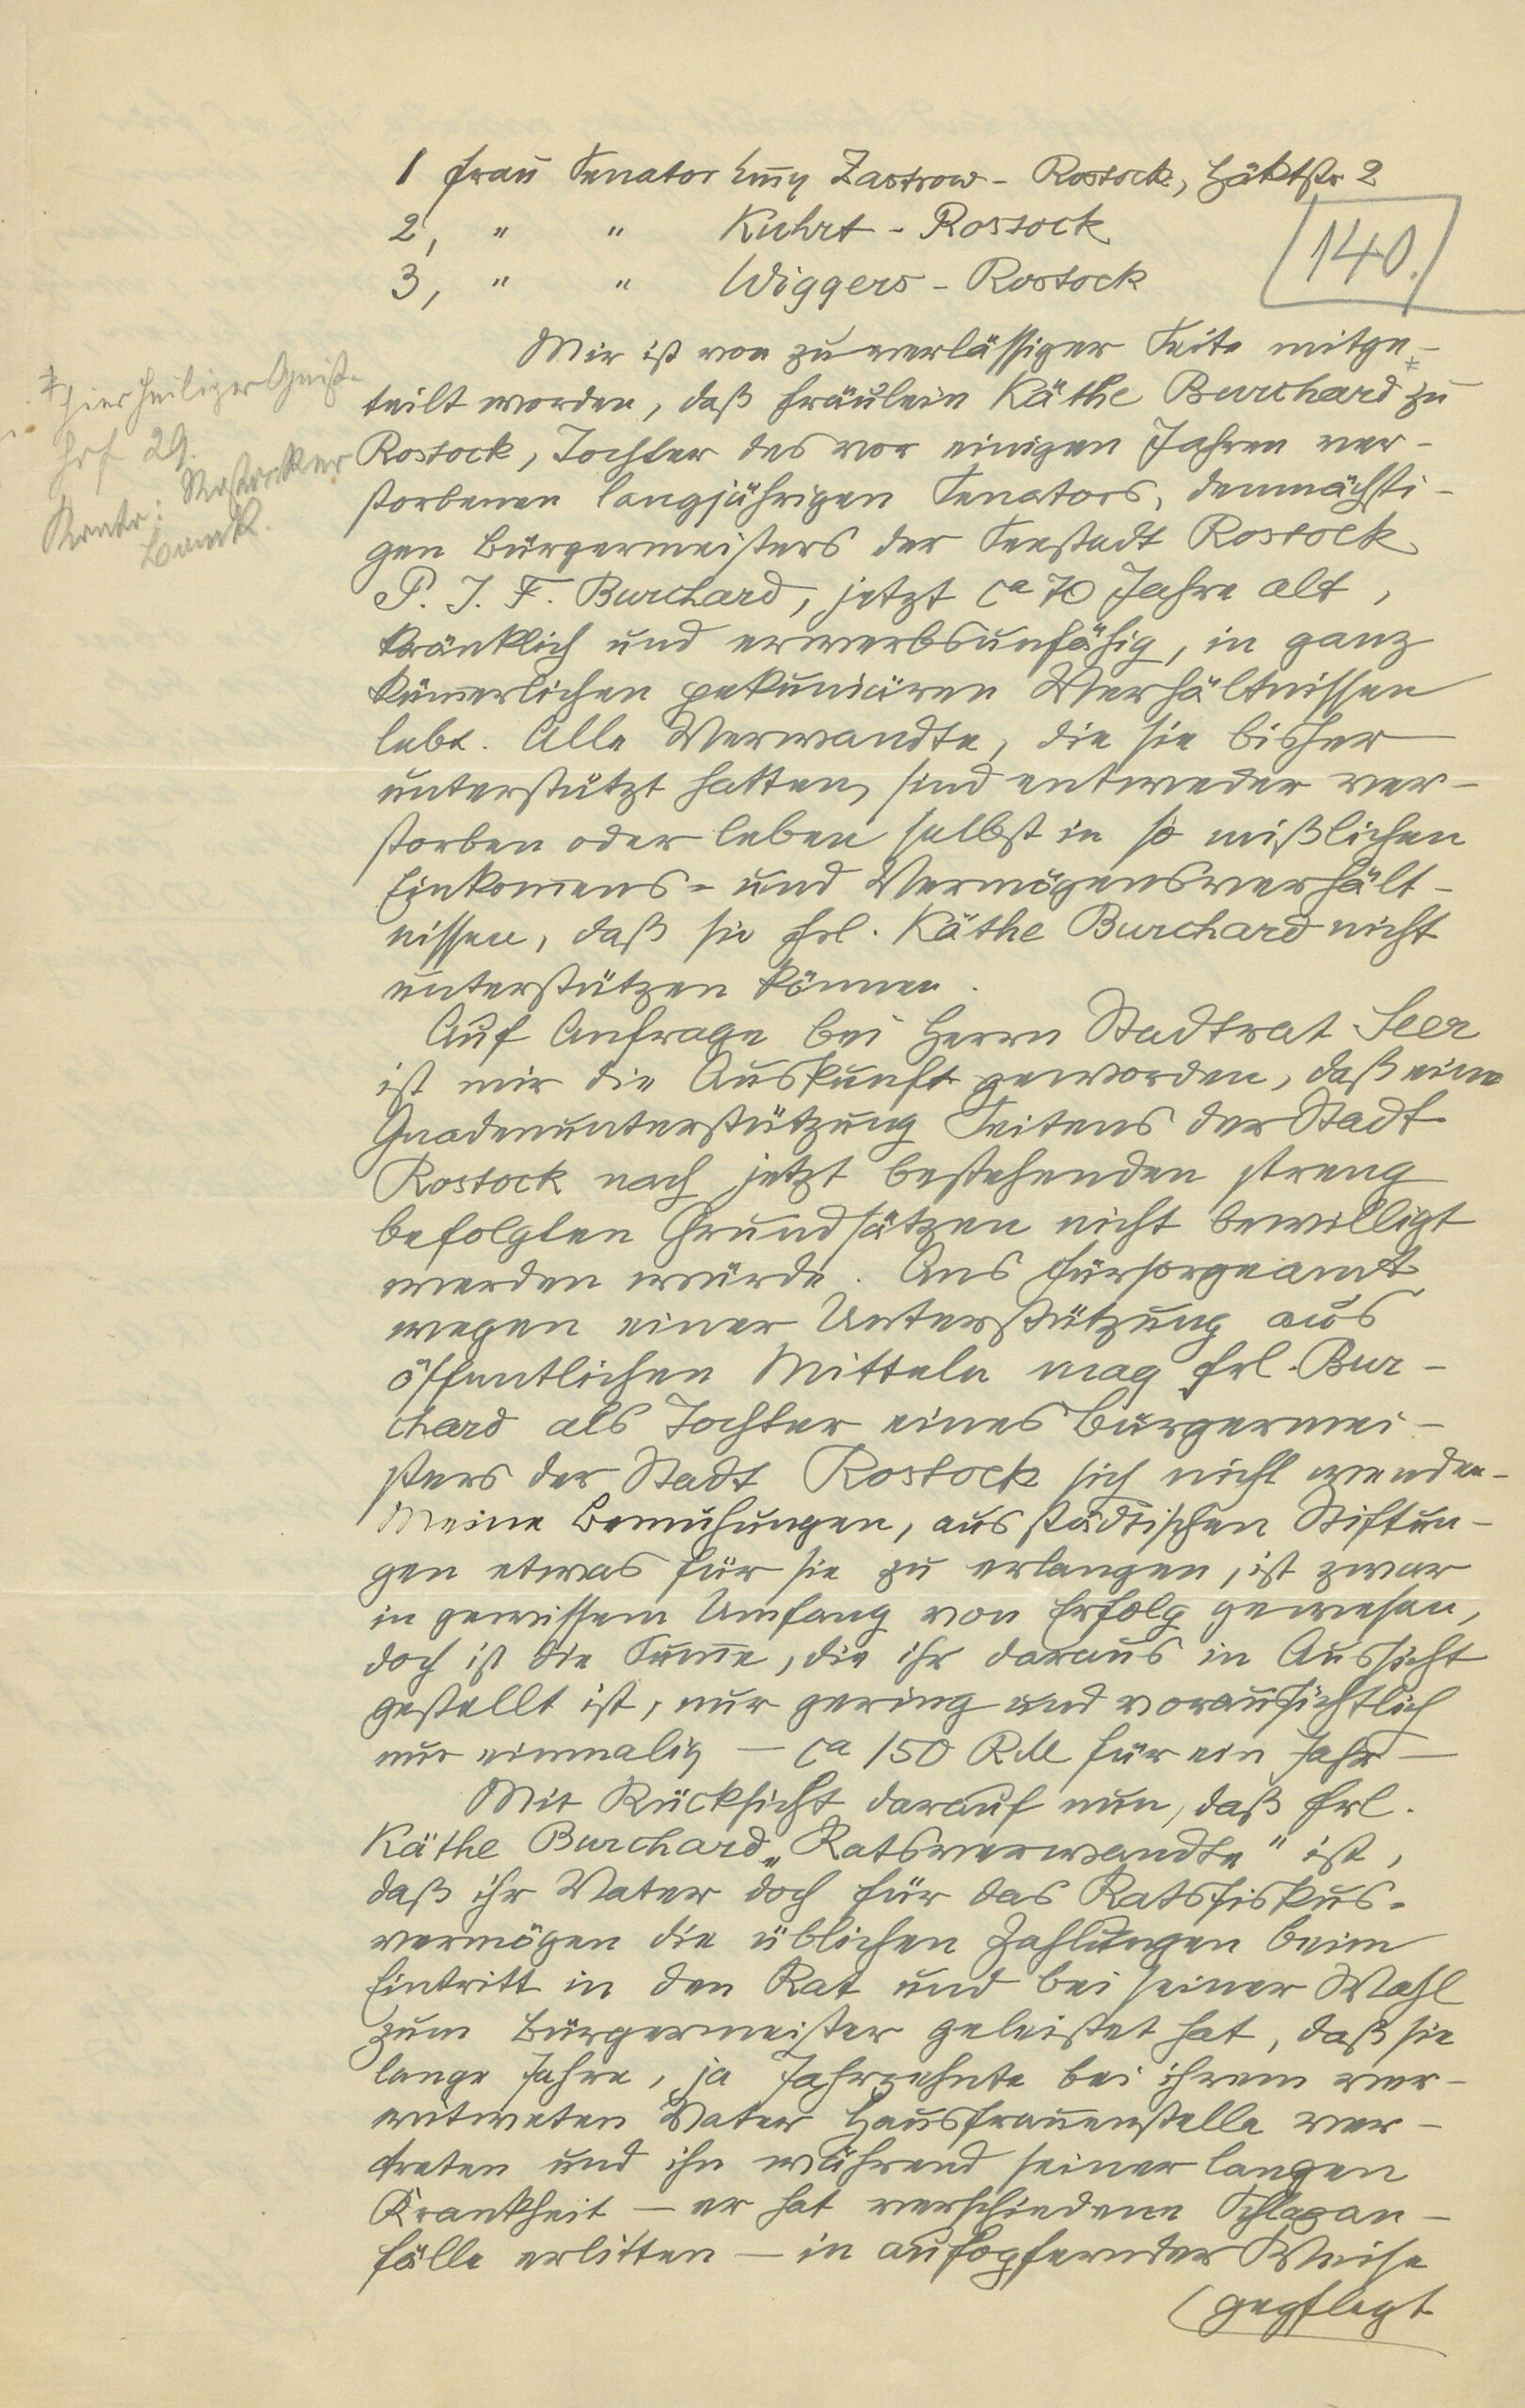 1 Frau Senator Emmy Zastrow - Rostock, Häktstr 2
2, " " Kuhrt - Rostock
3, " " Wiggers - Rostock
140.
Mir ist von zuverlässiger Seite mitge-
teilt worden, daß Fräulein Käthe Burchard * zu
Rostock, Tochter des vor einigen Jahren ver-
storbenen langjährigen Senators, demnächsti-
gen Bürgermeisters der Seestadt Rostock
P. J. F. Burchard, jetzt ca 70 Jahre alt,
kränklich und erwerbsunfähig, in ganz
kümerlichen pekuniären Verhältnissen
lebt. Alle Verwandte, die sie bisher
unterstützt hatten, sind entweder ver-
storben oder leben selbst in so mißlichen
Einkomens- und Vermögensverhält-
nissen, daß sie Frl. Käthe Burchard nicht
unterstützen können.
Auf Anfrage bei Herrn Stadtrat Seer
ist mir die Auskunft geworden, daß eine
Gnadenunterstützung Seitens der Stadt
Rostock nach jetzt bestehenden streng
befolgten Grundsätzen nicht bewilligt
werden würde. Ans Fürsorgeamt
wegen einer Unterstützung aus
öffentlichen Mitteln mag Frl. Bur-
chard als Tochter eines Bürgermei-
sters der Stadt Rostock sich nicht wenden-
Meine Bemühungen, aus städtischen Stiftun-
gen etwas für sie zu erlangen, ist zwar
in gewissem Umfang von Erfolg gewesen,
doch ist die Sume, die ihr daraus in Aussicht
gestellt ist, nur gering und voraussichtlich
nur einmalig - ca 150 RM für ein Jahr -
Mit Rücksicht darauf nun, daß Frl.
Käthe Burchard „Ratsverwandte" ist,
daß ihr Vater doch für das Ratsfiskus-
vermögen die üblichen Zahlungen beim
Eintritt in den Rat und bei seiner Wahl
zum Bürgermeister geleistet hat, daß sie
lange Jahre, ja Jahrzehnte bei ihrem ver-
witweten Vater Hausfrauenstelle ver-
treten und ihn während seiner langen
Krankheit - er hat verschiedene Schlagan-
fälle erlitten - in aufopfernder Weise
gepflegt
* hier Heiliger Geist-
hof 29.
Konto: Rostocker
Bank.